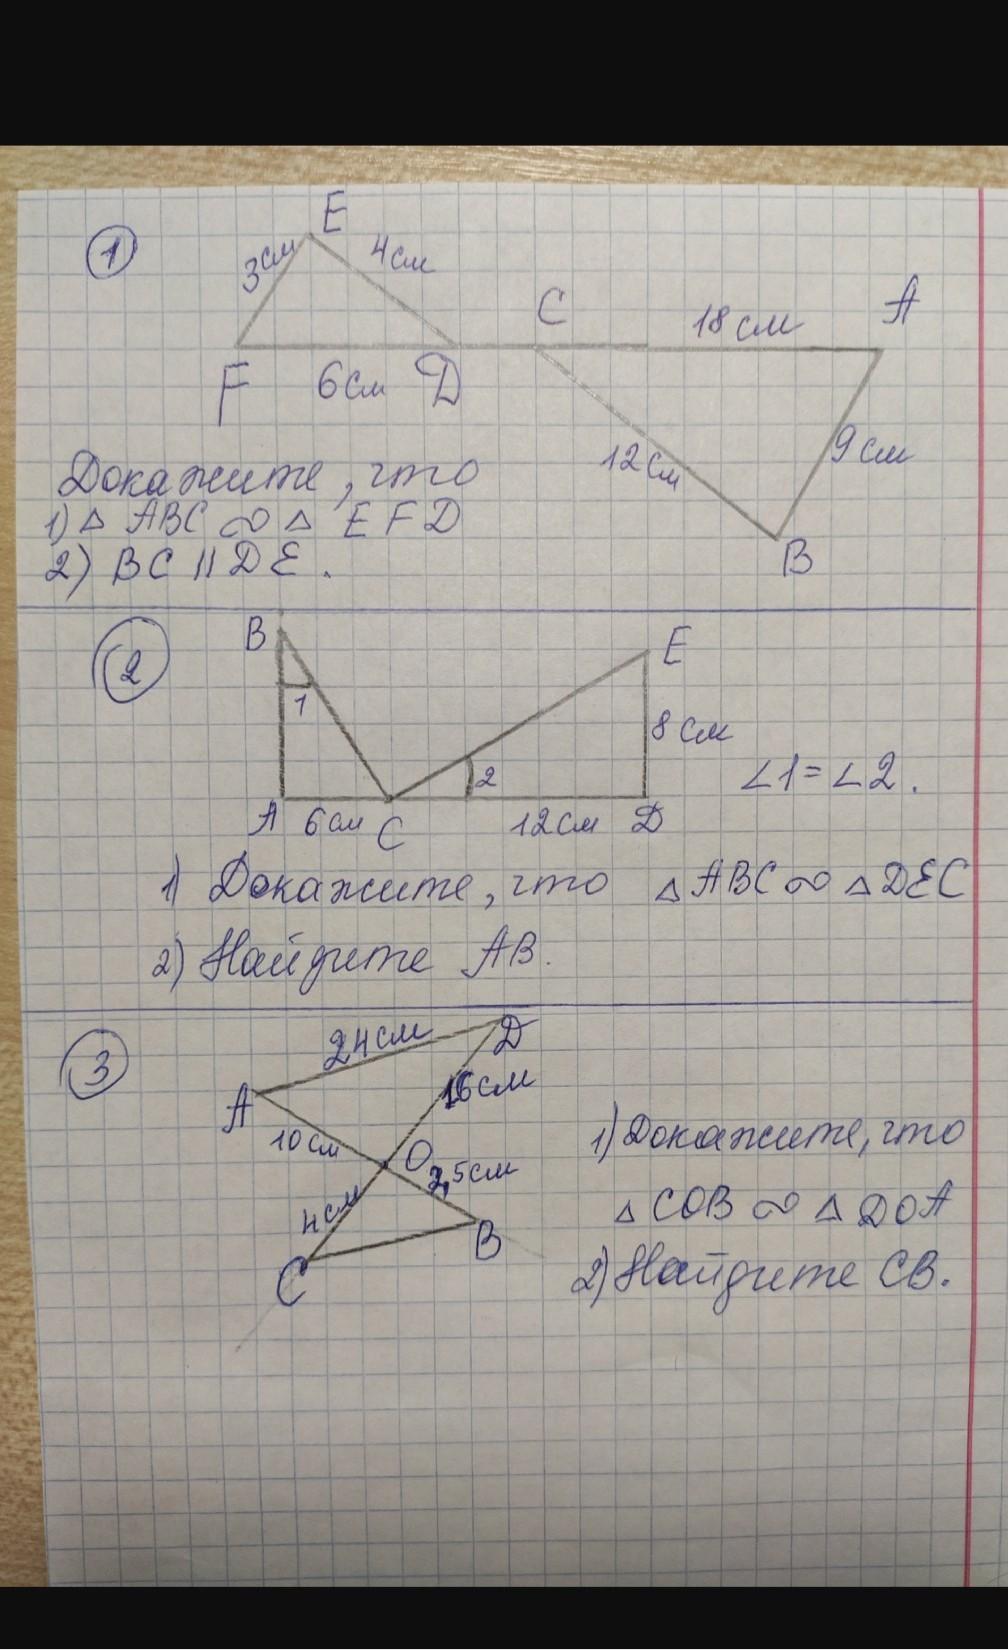 1
E
3см 4см
C 18см A
F 6см D
12см 9см
B
Докажите, что
1) △ ABC ∾ △ EFD
2) BC || DE.
2
B E
1
8см
2
∠1=∠2.
A 6см C 12см D
1) Докажите, что △ABC ∾ △DEC
2) Найдите AB.
3
24см D
A 16см
10см O 2,5см
4см
B
C
1) Докажите, что
△ COB ∾ △ DOA
2) Найдите CB.